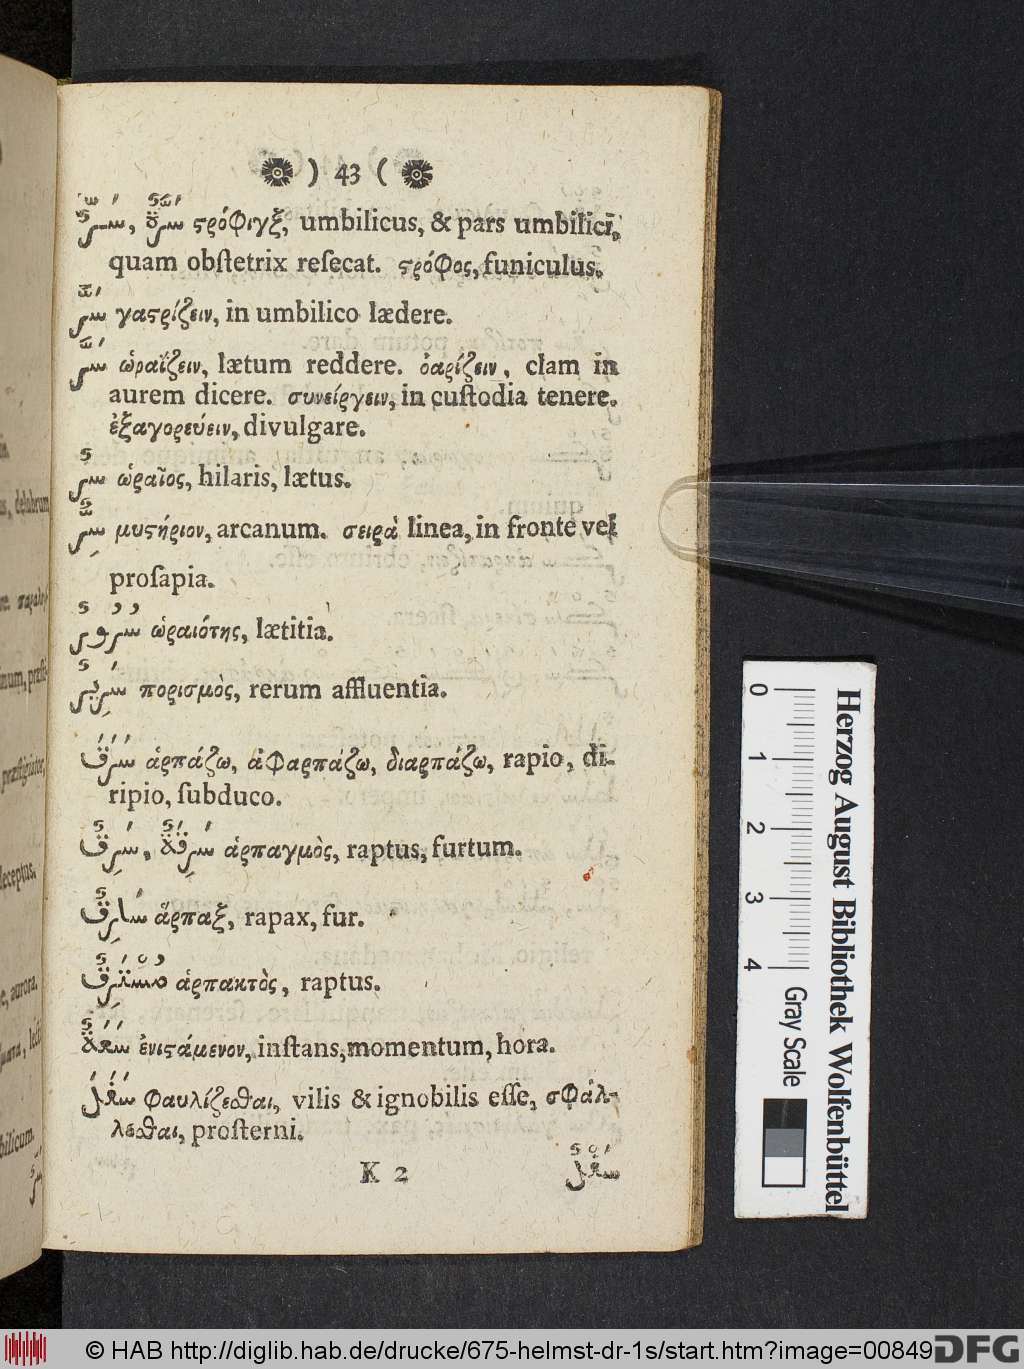 ) 43 (
سُرٌّ, سُرَّةٌ ϛρόφιγξ, umbilicus, & pars umbilici,
quam obſtetrix reſecat. ϛρόφος, funiculus.
سَرَّ γαϛρίζειν, in umbilico lædere.
سَرَّ ὡραΐζειν, lætum reddere. ὀαρίζειν, clam in
aurem dicere. συνείργειν, in cuſtodia tenere.
ἐξαγορεύειν, divulgare.
سر ὡραῖος, hilaris, lætus.
سِرٌّ μυϛήριον, arcanum. σειρὰ linea, in fronte vel
proſapia.
سُرُورٌ ὡραιότης, lætitia.
سَرِيرٌ πορισμὸς, rerum affluentia.
سَرَقَ ἁρπάζω, ἀφαρπάζω, διαρπάζω, rapio, di-
ripio, ſubduco.
سَرِقٌ, سَرِقَةٌ ἁρπαγμὸς, raptus, furtum.
سَارِقٌ ἅρπαξ, rapax, fur.
ἁρπακτὸς, raptus.
سَاعَةٌ ἐνιϛάμενον, inſtans, momentum, hora.
سَفَلَ φαυλίζεσθαι, vilis & ignobilis eſſe, σφάλ-
λεσθαι, proſterni.
K 2
سفل
Herzog August Bibliothek Wolfenbüttel
0 1 2 3 4
Gray Scale
© HAB http://diglib.hab.de/drucke/675-helmst-dr-1s/start.htm?image=00849
DFG